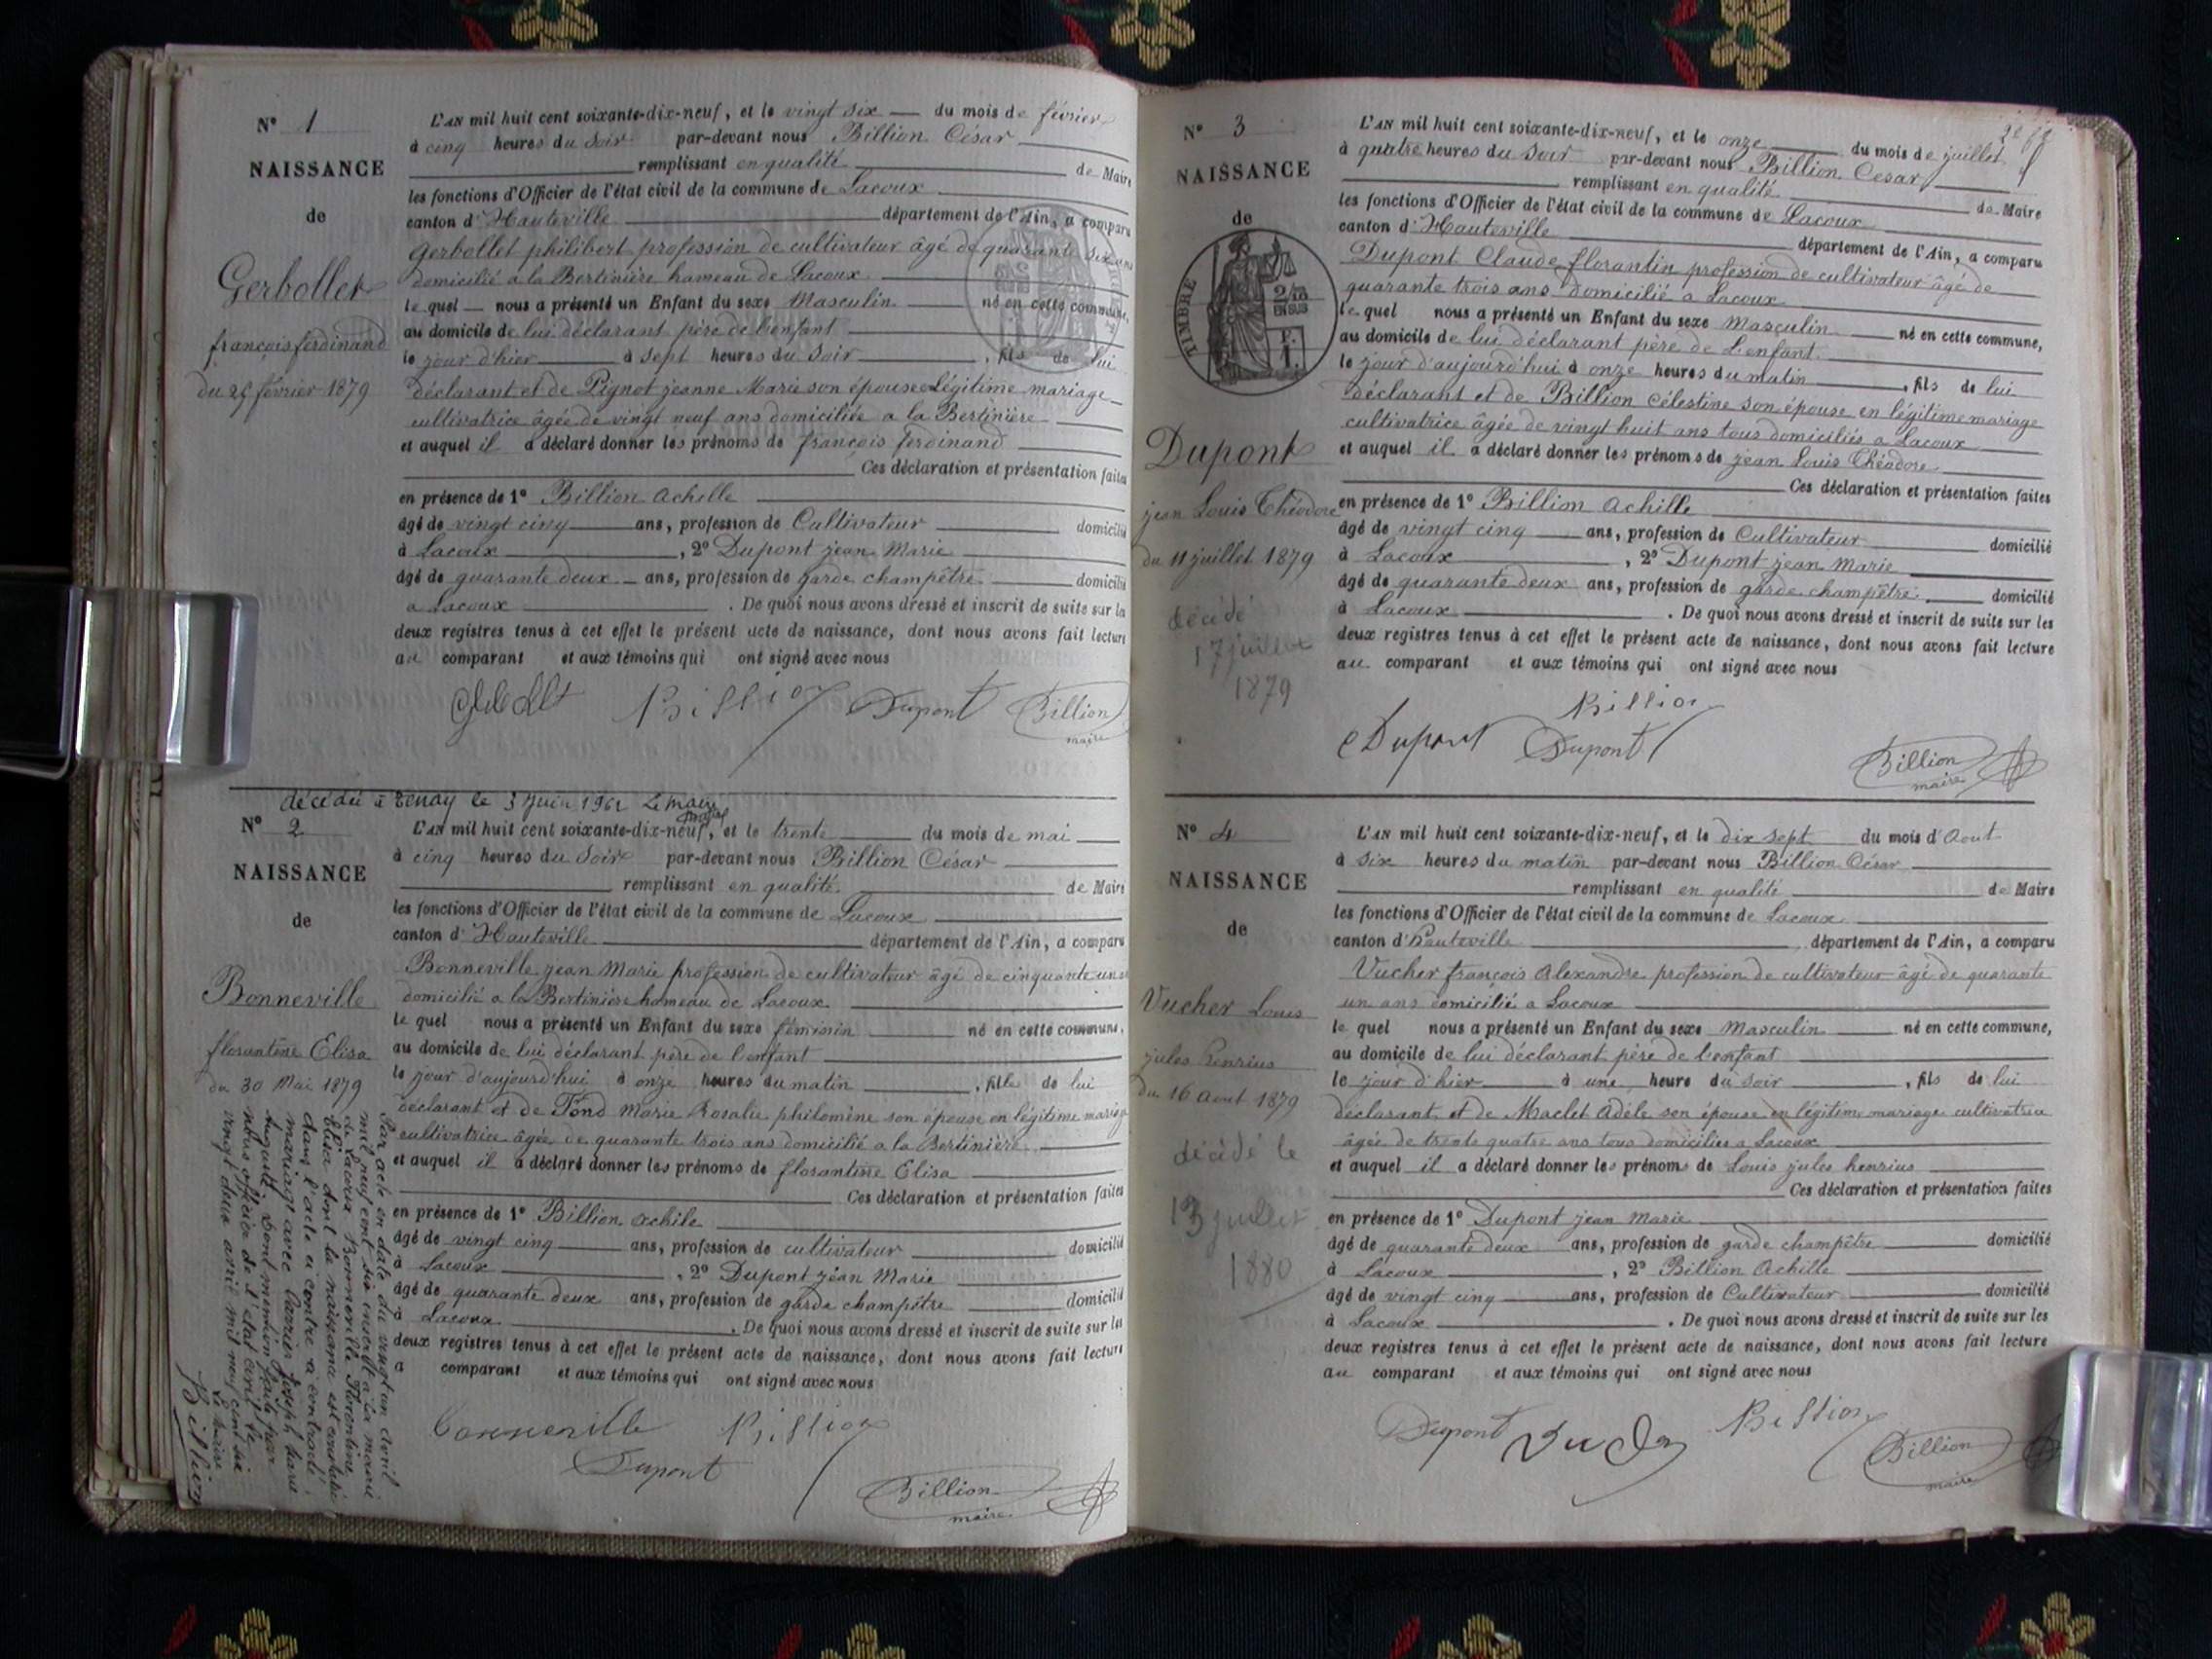 N° 1
NAISSANCE
de
Gerbollet
françois ferdinand
du 25 février 1879
L'AN mil huit cent soixante-dix-neuf, et le vingt six du mois de février
à cinq heures du soir par-devant nous Billion César
remplissant en qualité de Maire
les fonctions d'Officier de l'état civil de la commune de Lacoux
canton d'Hauteville département de l'Ain, a comparu
Gerbollet philibert profession de cultivateur âgé de quarante six ans
domicilié a la Bertinière hameau de Lacoux
le quel nous a présenté un Enfant du sexe Masculin né en cette commune,
au domicile de lui déclarant père de l'enfant
le jour d'hier à sept heures du soir , fils de lui
déclarant et de Pignot jeanne Marie son épouse légitime mariage
cultivatrice âgée de vingt neuf ans domiciliée a la Bertinière
et auquel il a déclaré donner les prénoms de françois ferdinand
Ces déclaration et présentation faites
en présence de 1° Billion Achille
âgé de vingt cinq ans, profession de Cultivateur domicilié
à Lacoux , 2° Dupont jean Marie
âgé de quarante deux ans, profession de garde champêtre domicilié
a Lacoux . De quoi nous avons dressé et inscrit de suite sur les
deux registres tenus à cet effet le présent acte de naissance, dont nous avons fait lecture
au comparant et aux témoins qui ont signé avec nous
Billion Dupont Billion
maire
décédée à Tenay le 3 Juin 1962 Le maire
N° 2
NAISSANCE
de
Bonneville
florantine Elisa
du 30 Mai 1879
Par acte en date du vingt un avril
mil neuf cent six inscrit à la mairie
de Lacoux Bonneville Florentine
Elisa dont la naissance est constatée
dans l'acte ci contre a contracté
mariage avec Carrier Joseph Marie
Auguste. Dont mention faite par
nous officier de l'état civil le
vingt deux avril mil neuf cent six
Le Maire
Billion
L'AN mil huit cent soixante-dix-neuf, et le trente du mois de mai
à cinq heures du soir par-devant nous Billion César
remplissant en qualité de Maire
les fonctions d'Officier de l'état civil de la commune de Lacoux
canton d'Hauteville département de l'Ain, a comparu
Bonneville jean Marie profession de cultivateur âgé de cinquante un
domicilié a la Bertinière hameau de Lacoux
le quel nous a présenté un Enfant du sexe féminin né en cette commune,
au domicile de lui déclarant père de l'enfant
le jour d'aujourd'hui à onze heures du matin , fille de lui
déclarant et de Fond Marie Rosalie philomène son épouse en légitime mariage
cultivatrice âgée de quarante trois ans domicilié a la Bertinière
et auquel il a déclaré donner les prénoms de florantine Elisa
Ces déclaration et présentation faites
en présence de 1° Billion Achile
âgé de vingt cinq ans, profession de cultivateur domicilié
à Lacoux , 2° Dupont jean Marie
âgé de quarante deux ans, profession de garde champêtre domicilié
à Lacoux . De quoi nous avons dressé et inscrit de suite sur les
deux registres tenus à cet effet le présent acte de naissance, dont nous avons fait lecture
a comparant et aux témoins qui ont signé avec nous
Bonneville Billion
Dupont
Billion
maire
N° 3
NAISSANCE
de
TIMBRE
2/10
EN SUS
Dupont
jean Louis Théodore
du 11 juillet 1879
décédé
17 juillet
1879
L'AN mil huit cent soixante-dix-neuf, et le onze du mois de juillet
à quatre heures du soir par-devant nous Billion Cesar
remplissant en qualité de Maire
les fonctions d'Officier de l'état civil de la commune de Lacoux
canton d'Hauteville département de l'Ain, a comparu
Dupont Claude florantin profession de cultivateur âgé de
quarante trois ans domicilié a Lacoux
le quel nous a présenté un Enfant du sexe Masculin né en cette commune,
au domicile de lui déclarant père de L'enfant
le jour d'aujourd'hui à onze heures du matin , fils de lui
déclarant et de Billion Célestine son épouse en légitime mariage
cultivatrice âgée de vingt huit ans tous domiciliés a Lacoux
et auquel il a déclaré donner les prénoms de jean Louis Théodore
Ces déclaration et présentation faites
en présence de 1° Billion Achille
âgé de vingt cinq ans, profession de Cultivateur domicilié
à Lacoux , 2° Dupont jean Marie
âgé de quarante deux ans, profession de garde champêtre domicilié
à Lacoux . De quoi nous avons dressé et inscrit de suite sur les
deux registres tenus à cet effet le présent acte de naissance, dont nous avons fait lecture
au comparant et aux témoins qui ont signé avec nous
Billion
Dupont Dupont
Billion
maire
N° 4
NAISSANCE
de
Vucher Louis
jules henrius
du 16 Aout 1879
décédé le
13 juillet
1880
L'AN mil huit cent soixante-dix-neuf, et le dix sept du mois d'Aout
à six heures du matin par-devant nous Billion César
remplissant en qualité de Maire
les fonctions d'Officier de l'état civil de la commune de Lacoux
canton d'hauteville département de l'Ain, a comparu
Vucher françois Alexandre profession de cultivateur âgé de quarante
un ans domicilié a Lacoux
le quel nous a présenté un Enfant du sexe Masculin né en cette commune,
au domicile de lui déclarant père de l'enfant
le jour d'hier à une heure du soir , fils de lui
déclarant et de Maclet Adèle son épouse en légitime mariage cultivatrice
âgée de trente quatre ans tous domiciliés a Lacoux
et auquel il a déclaré donner les prénoms de Louis jules henrius
Ces déclaration et présentation faites
en présence de 1° Dupont jean Marie
âgé de quarante deux ans, profession de garde champêtre domicilié
à Lacoux , 2° Billion Achille
âgé de vingt cinq ans, profession de Cultivateur domicilié
à Lacoux . De quoi nous avons dressé et inscrit de suite sur les
deux registres tenus à cet effet le présent acte de naissance, dont nous avons fait lecture
au comparant et aux témoins qui ont signé avec nous
Dupont Billion
Billion
maire